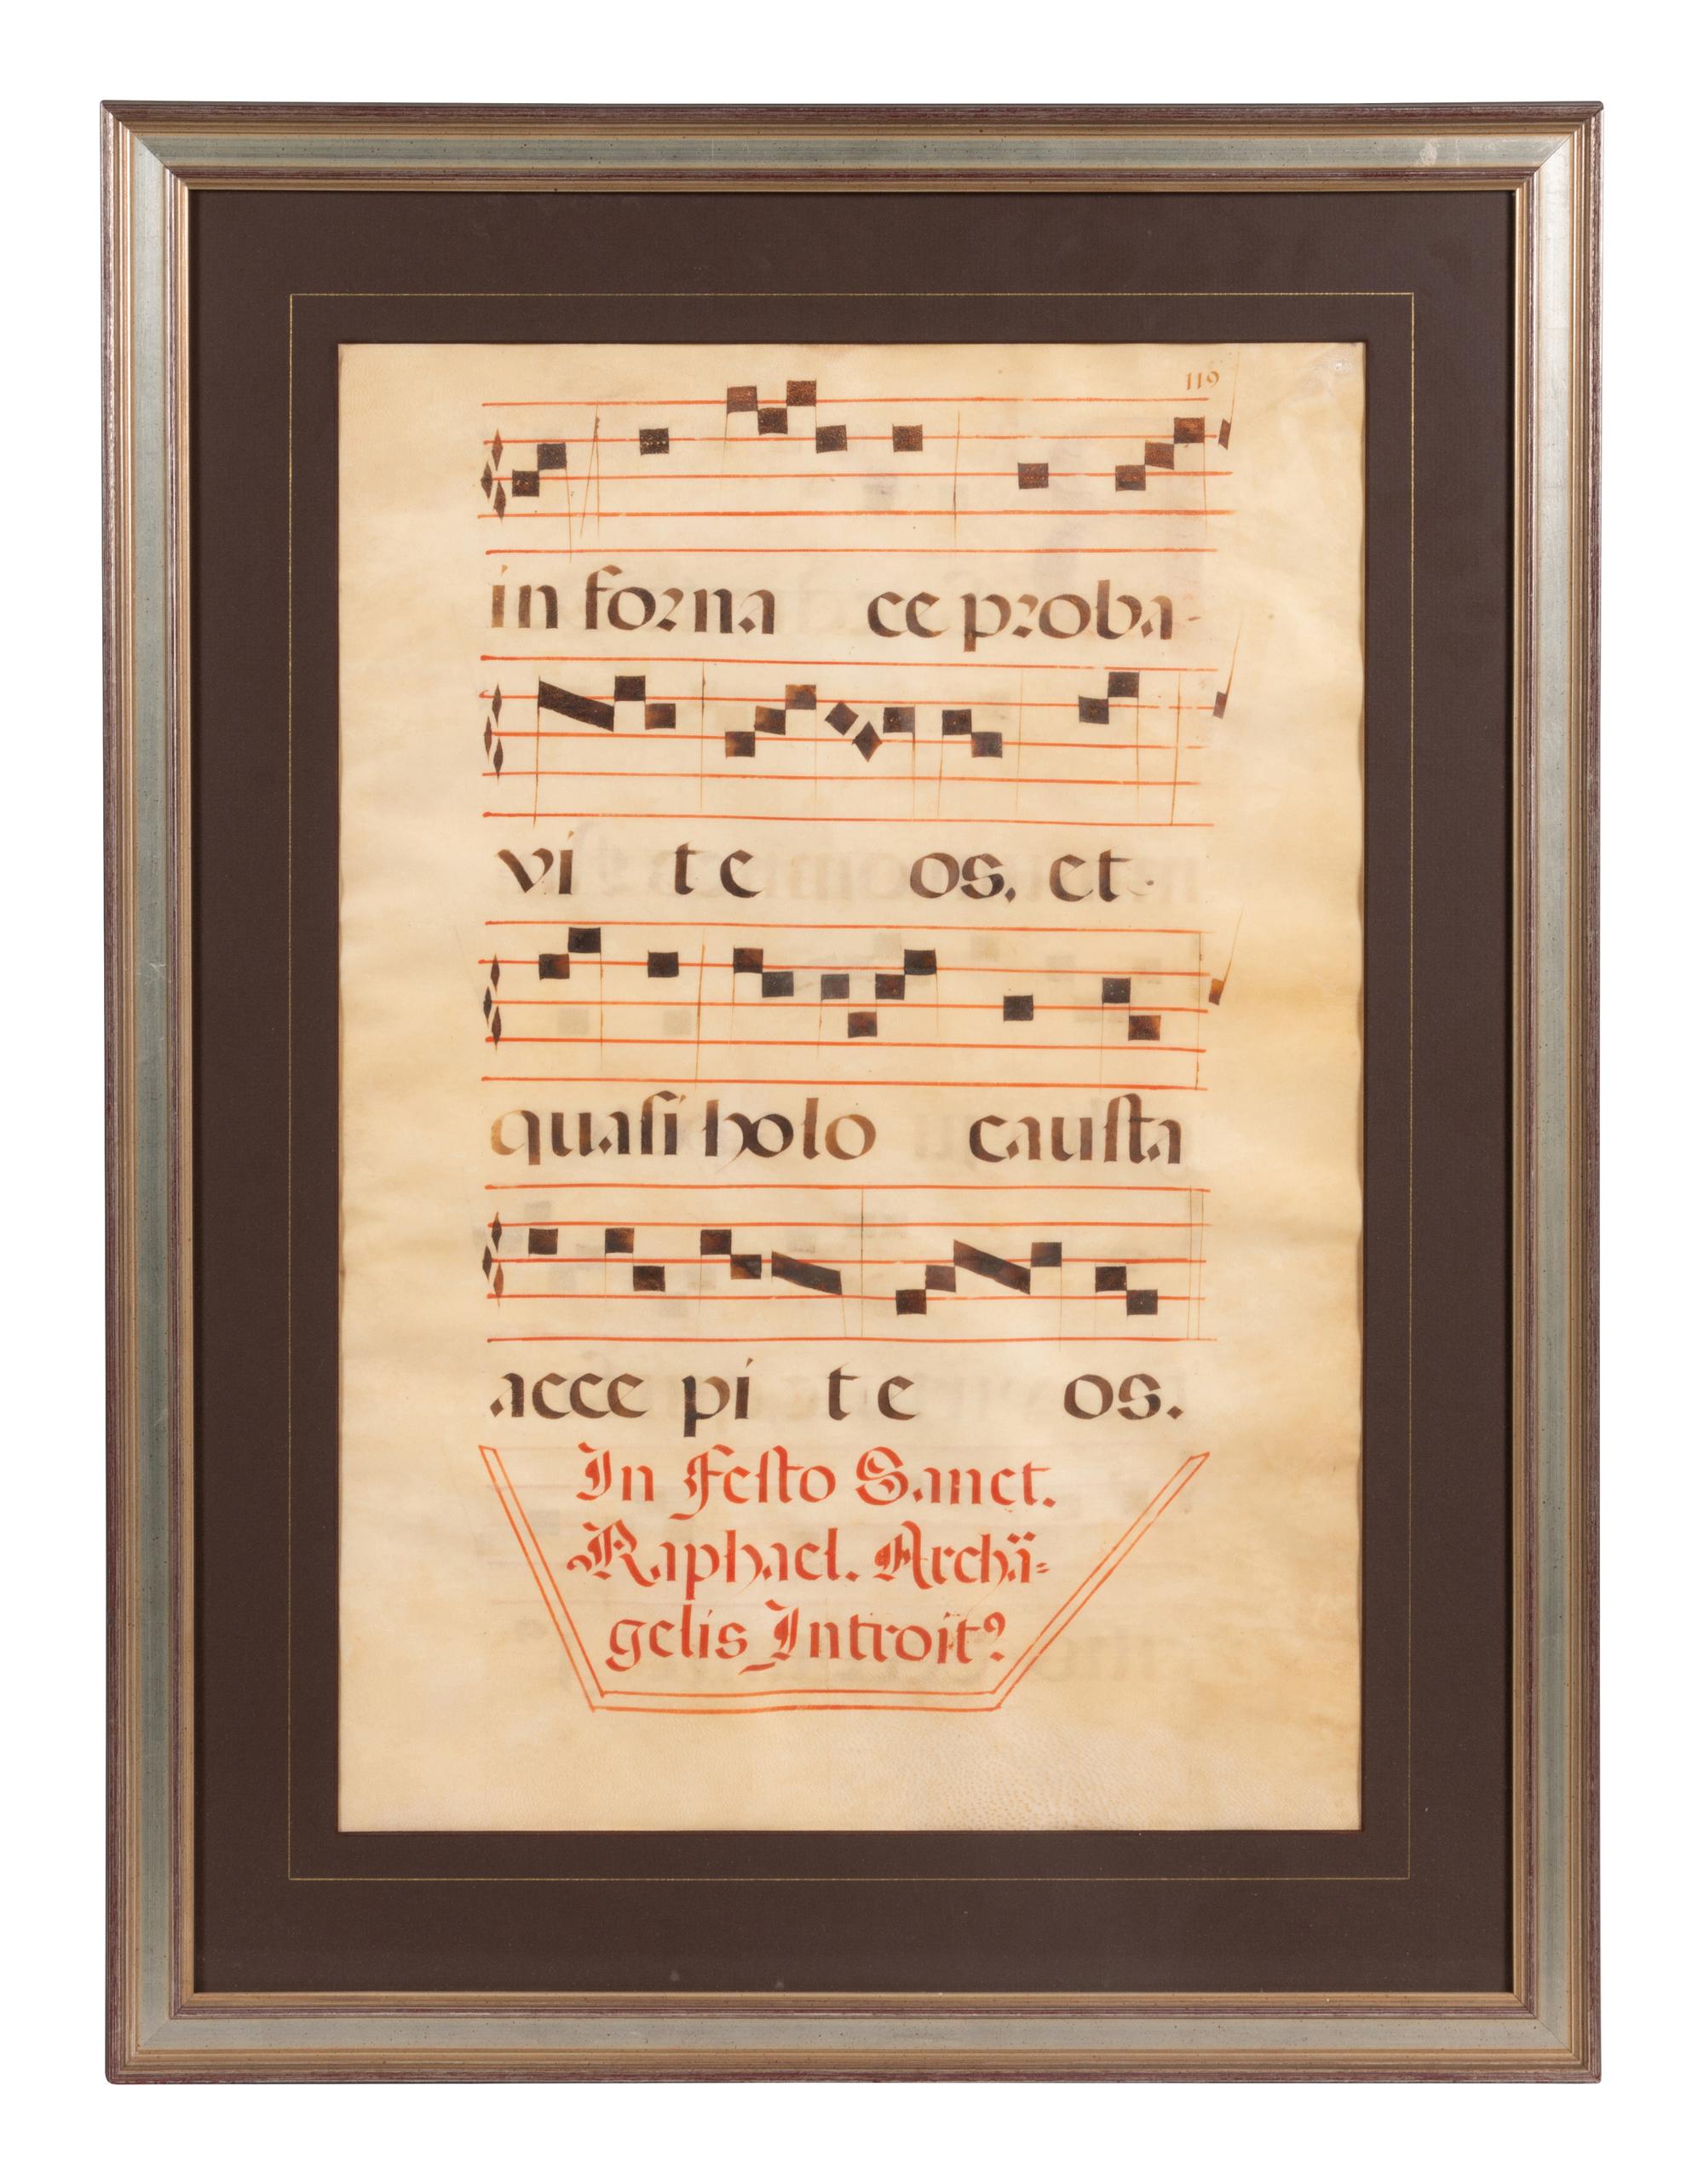 119
in forna ce proba-
vi te os. et
quasi holo causta
acce pi te os.
In Festo Sanct.
Raphael. Archä=
gelis Introit?